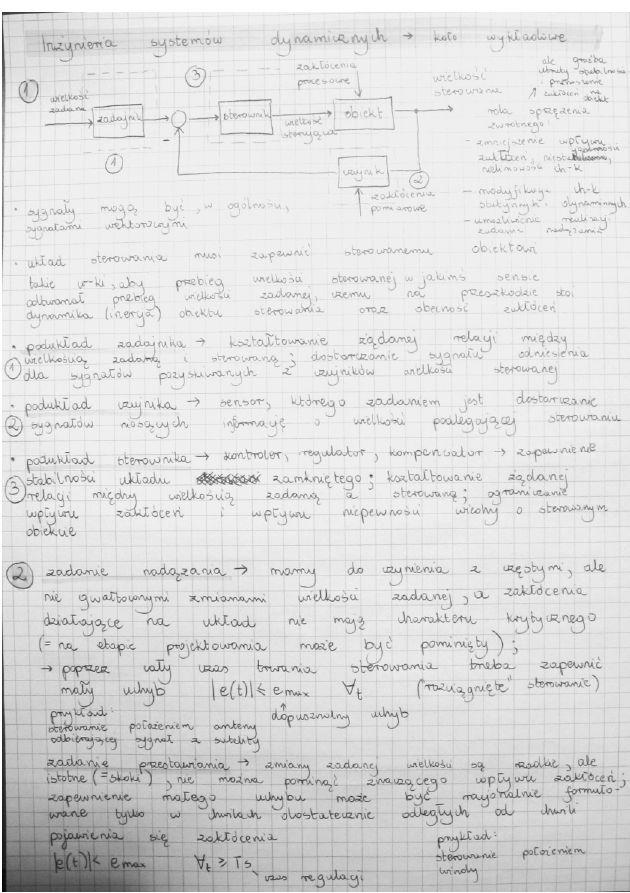 Inżynieria systemów dynamicznych → koło wykładowe
①
wielkość
zadana
zadajnik
①
③
sterownik
wielkość
sterująca
zakłócenia
procesowe
obiekt
wielkość
sterowana
czujnik
②
zakłócenia
pomiarowe
ale groźba
utraty stabilności
i przenoszenie
zakłóceń na
obiekt
rola sprzężenia
zwrotnego:
- zmniejszenie wpływu
zakłóceń,
nieliniowości ch-k
- modyfikacja ch-k
statycznych i dynamicznych
- umożliwienie realizacji
zadania nadążania
• sygnały mogą być, w ogólności,
sygnałami wektorowymi
• układ sterowania musi zapewnić sterowanemu obiektowi
takie w-ki, aby przebieg wielkości sterowanej w jakimś sensie
odtwarzał przebieg wielkości zadanej, czemu na przeszkodzie stoi
dynamika (inercja) obiektu sterowania oraz obecność zakłóceń
• podukład zadajnika → kształtowanie żądanej relacji między
① wielkością zadaną i sterowaną; dostarczanie sygnału odniesienia
dla sygnałów pozyskiwanych z czujników wielkości sterowanej
• podukład czujnika → sensor, którego zadaniem jest dostarczanie
② sygnałów niosących informację o wielkości podlegającej sterowaniu
• podukład sterownika → kontroler, regulator, kompensator → zapewnienie
③ stabilności układu zamkniętego; kształtowanie żądanej
relacji między wielkością zadaną a sterowaną; ograniczanie
wpływu zakłóceń i wpływu niepewności wiedzy o sterowanym
obiekcie
② zadanie nadążania → mamy do czynienia z częstymi, ale
nie gwałtownymi zmianami wielkości zadanej, a zakłócenia
działające na układ nie mają charakteru krytycznego
(= na etapie projektowania może być pominięty);
→ poprzez cały czas trwania sterowania trzeba zapewnić
mały uchyb |e(t)| ≤ emax ∀t ("rozciągnięte" sterowanie)
dopuszczalny uchyb
przykład:
sterowanie położeniem anteny
odbierającej sygnał z satelity
zadanie przestawiania → zmiany zadanej wielkości są rzadkie, ale
istotne (= skoki), nie można pominąć znaczącego wpływu zakłóceń;
zapewnienie małego uchybu może być racjonalnie formuło-
wane tylko w chwilach dostatecznie odległych od chwili
pojawienia się zakłócenia
|e(t)| < emax ∀t ≥ Ts
czas regulacji
przykład:
sterowanie położeniem
windy